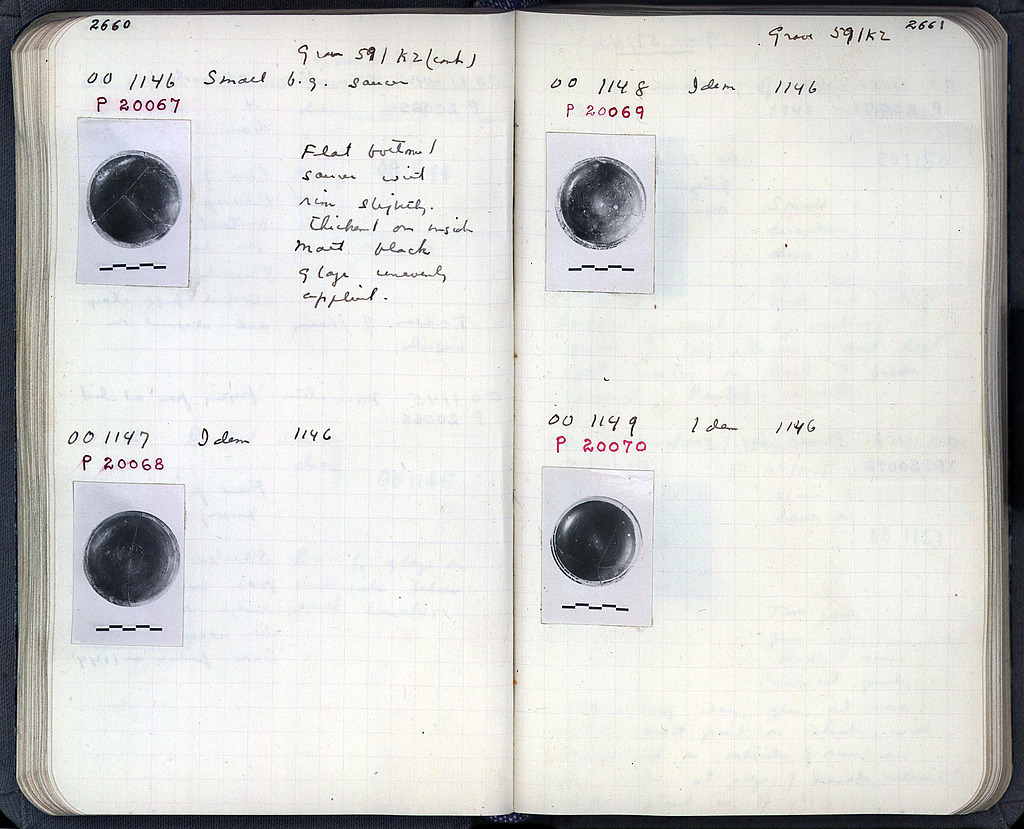 2660
Grave 59/K2 (cont)
OO 1146 Small b.g. saucer
P 20067
Flat bottomed
saucer with
rim slightly
thickened on inside
Matt black
glaze unevenly
applied.
OO 1147 Idem 1146
P 20068
2661
Grave 59/K2
OO 1148 Idem 1146
P 20069
OO 1149 Idem 1146
P 20070